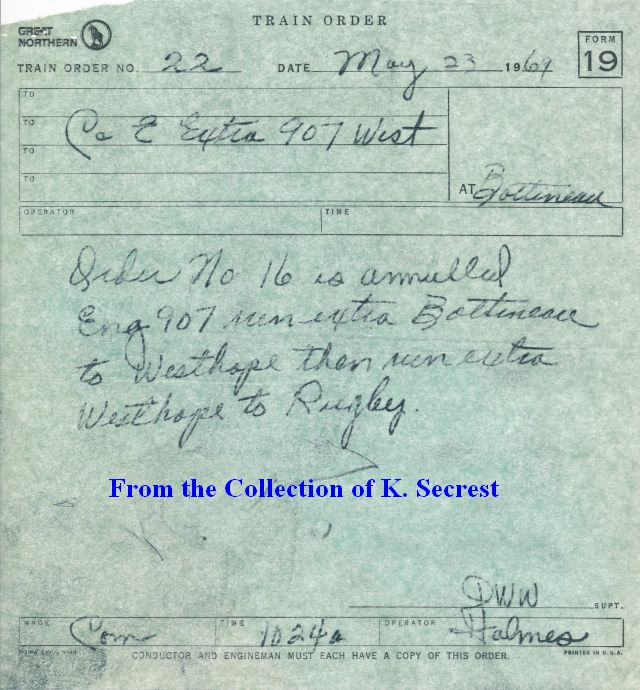 TRAIN ORDER
GREAT
NORTHERN
FORM
19
TRAIN ORDER NO. 22 DATE May 23 1969
TO
TO C & E Extra 907 West
TO
TO
AT Bottineau
OPERATOR TIME
Order No 16 is annulled
Eng 907 run extra Bottineau
to Westhope then run extra
Westhope to Rugby.
From the Collection of K. Secrest
DWW SUPT.
MADE Com TIME 1024a OPERATOR Holmes
CONDUCTOR AND ENGINEMAN MUST EACH HAVE A COPY OF THIS ORDER.
PRINTED IN U.S.A.